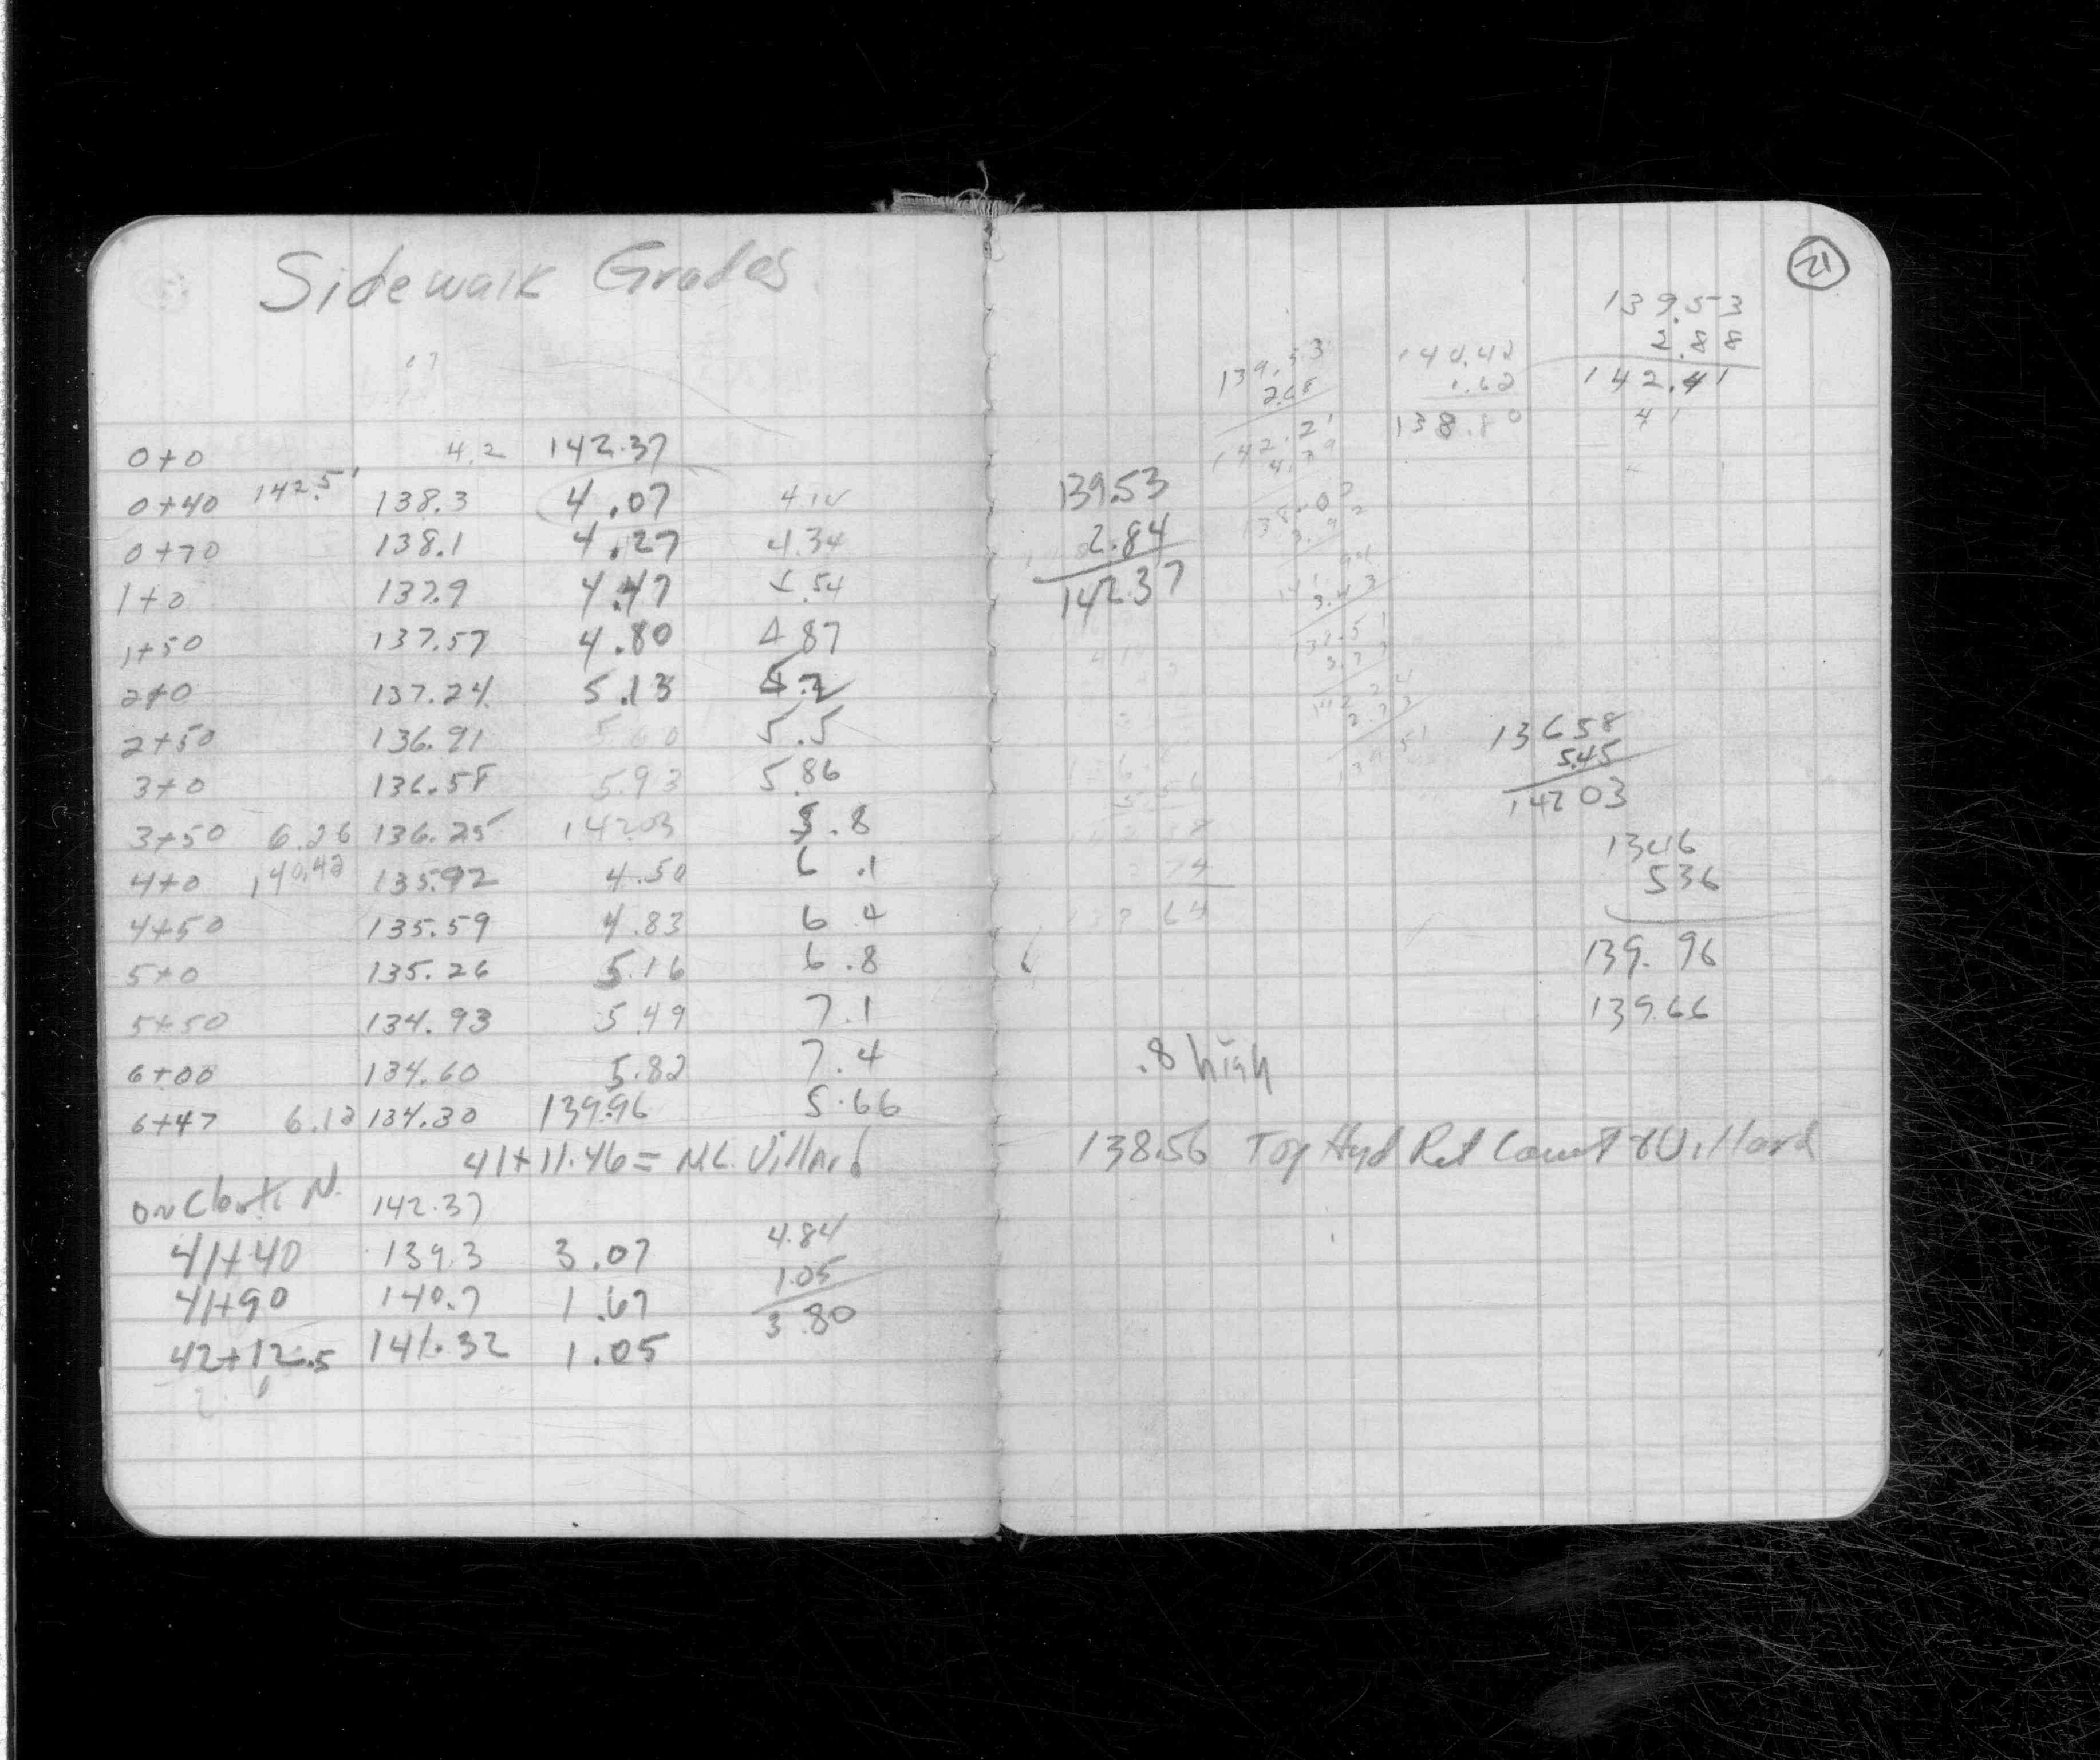 Sidewalk Grades
0+0 4.2 142.37
0+40 142.5 138.3 4.07
0+70 138.1 4.27 4.34
1+0 137.9 4.47 4.54
1+50 137.57 4.80 4.87
2+0 137.24 5.13 5.2
2+50 136.91 5.60 5.5
3+0 136.58 5.93 5.86
3+50 6.26 136.25 142.03 5.8
4+0 140.42 135.92 4.50 6.1
4+50 135.59 4.83 6.4
5+0 135.26 5.16 6.8
5+50 134.93 5.49 7.1
6+00 134.60 5.82 7.4
6+47 6.12 134.30 139.96 5.66
41+11.46 = N.L. Villard
on N. 142.37
41+40 139.3 3.07
41+90 140.7 1.67
42+12.5 141.32 1.05
4.84
1.05
3.80
21
139.53
2.88
142.41
41
140.42
1.62
138.80
139.53
2.68
142.21
139.53
2.84
142.37
136.58
5.45
142.03
134.6
536
139.96
139.66
.8 high
138.56 Top Hyd Villard